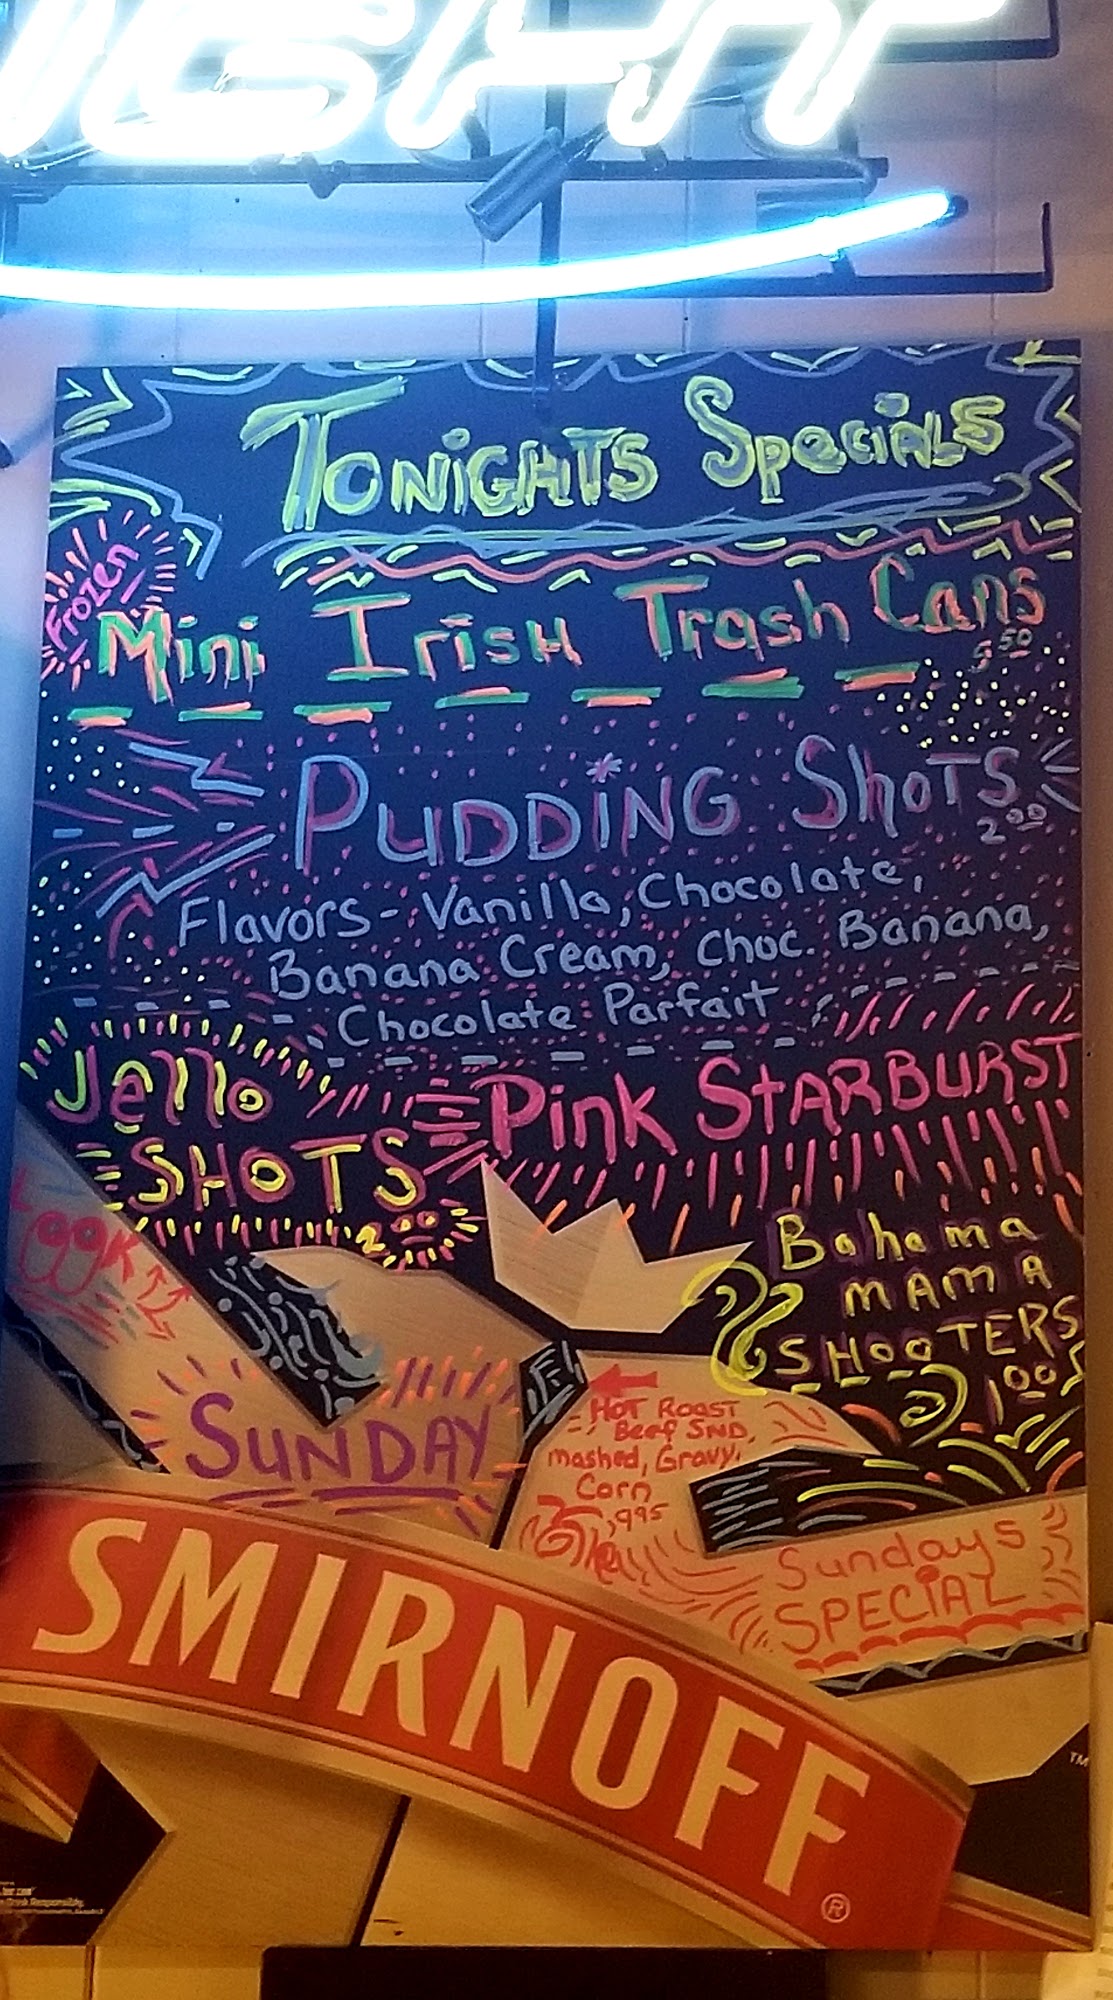 TONIGHTS SPECIALS
Frozen
Mini Irish Trash Cans
5.50
PUDDING SHOTS
2.00
Flavors- Vanilla, Chocolate,
Banana Cream, Choc. Banana,
Chocolate Parfait
Jello
SHOTS
2.00
Pink STARBURST
Bahama
MAMA
SHOOTERS
1.00
LOOK
SUNDAY
HOT ROAST
Beef SND,
mashed, Gravy,
Corn
9.95
Sundays
SPECIAL
SMIRNOFF
®
TM
Drink Responsibly.